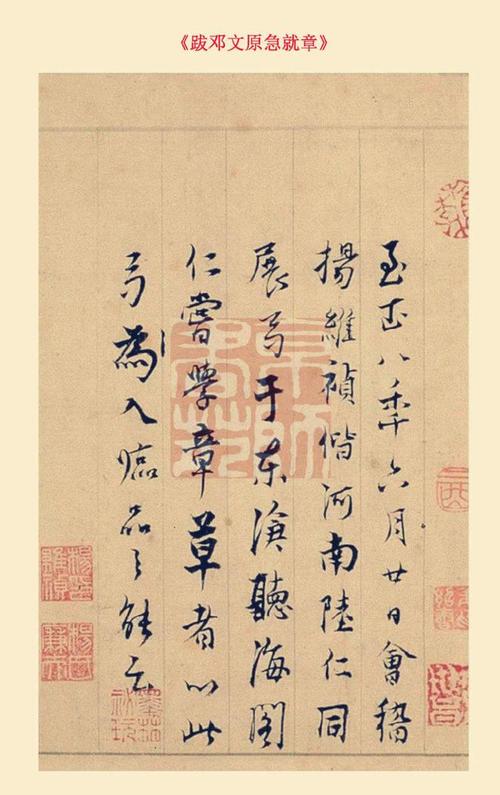 《跋邓文原急就章》
至正八年六月廿日會稽
揚維禎偕河南陸仁同
展弓于東滄聽海閣
仁嘗學章草者以此
弓為入臨品之能云